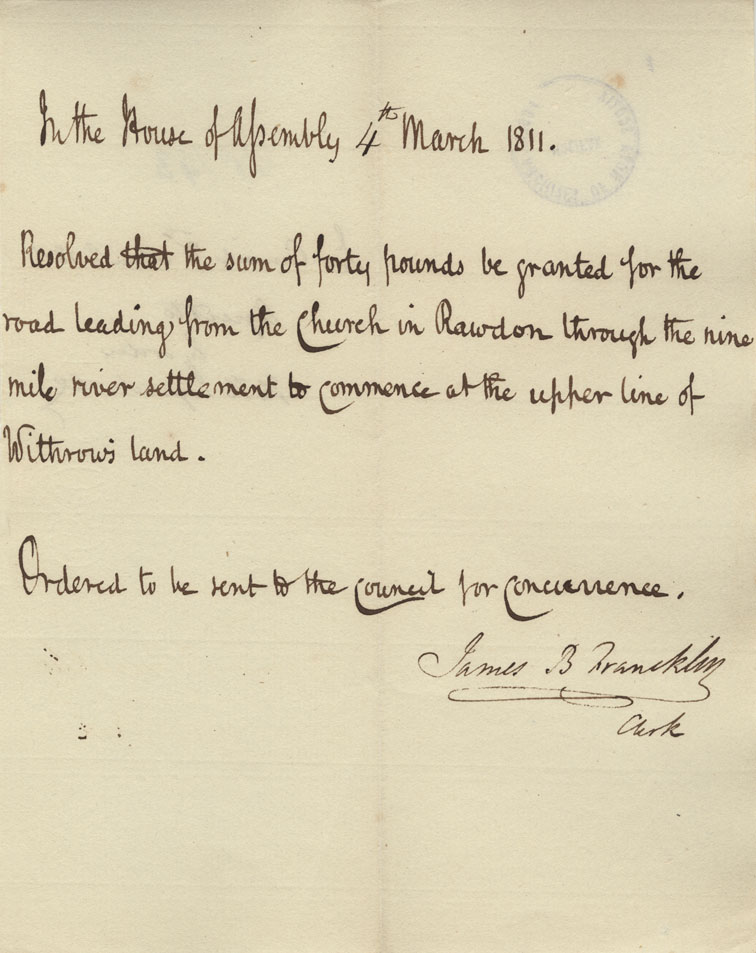 In the House of Assembly 4th March 1811.
Resolved that the sum of forty pounds be granted for the
road leading from the Church in Rawdon through the nine
mile river settlement to commence at the upper line of
Withrow's land.
Ordered to be sent to the Council for concurrence.
James B Francklin
Clerk